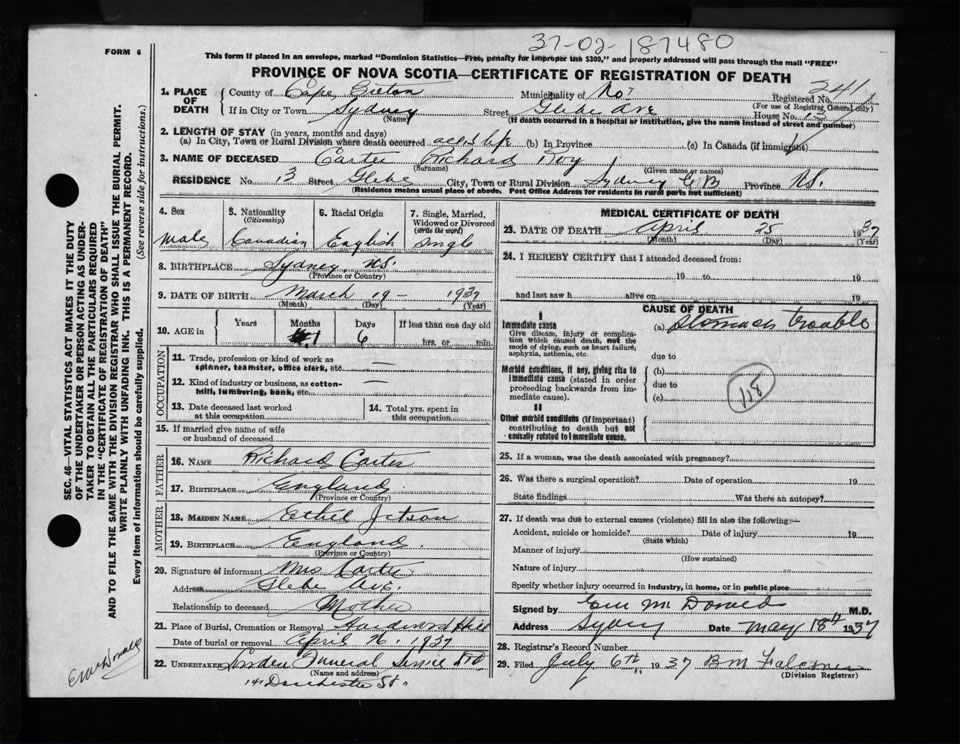 37-02-187480
FORM 6
This form if placed in an envelope, marked "Dominion Statistics—Free, penalty for improper use $300," and properly addressed will pass through the mail "FREE"
PROVINCE OF NOVA SCOTIA—CERTIFICATE OF REGISTRATION OF DEATH
1. PLACE OF DEATH
County of Cape Breton Municipality of Registered No. 241
(For use of Registrar General only)
If in City or Town Sydney Street Glebe Ave House No. 13
(Name) (If death occurred in a hospital or institution, give the name instead of street and number)
2. LENGTH OF STAY (in years, months and days)
(a) In City, Town or Rural Division where death occurred all his life (b) In Province (c) In Canada (if immigrant)
3. NAME OF DECEASED Carter Richard Roy
(Surname) (Given name or names)
RESIDENCE No. 13 Street Glebe City, Town or Rural Division Sydney C B Province N.S.
(Residence means usual place of abode. Post Office Address for residents in rural parts not sufficient)
4. Sex Male
5. Nationality (Citizenship) Canadian
6. Racial Origin English
7. Single, Married, Widowed or Divorced (Write the word) Single
8. BIRTHPLACE Sydney N.S.
(Province or Country)
9. DATE OF BIRTH March 19 - 1937
(Month) (Day) (Year)
10. AGE in Years Months Days If less than one day old
1 6 hrs. or min.
OCCUPATION
11. Trade, profession or kind of work as spinner, teamster, office clerk, etc. —
12. Kind of industry or business, as cotton-mill, lumbering, bank, etc. —
13. Date deceased last worked at this occupation
14. Total yrs. spent in this occupation
15. If married give name of wife or husband of deceased
FATHER
16. NAME Richard Carter
17. BIRTHPLACE England
(Province or Country)
MOTHER
18. MAIDEN NAME Ethel Jetson
19. BIRTHPLACE England.
(Province or Country)
20. Signature of informant Mrs Carter
Address Glebe Ave.
Relationship to deceased Mother
21. Place of Burial, Cremation or Removal Hardwood Hill
Date of burial or removal April 26 1937
22. UNDERTAKER Funeral Service Ltd
(Name and address)
141 Dorchester St.
MEDICAL CERTIFICATE OF DEATH
23. DATE OF DEATH April 25 1937
(Month) (Day) (Year)
24. I HEREBY CERTIFY that I attended deceased from:
19 to 19
and last saw h alive on 19
CAUSE OF DEATH
I
Immediate cause
Give disease, injury or complication which caused death, not the mode of dying, such as heart failure, asphyxia, asthenia, etc.
(a) Stomach trouble
due to
Morbid conditions, if any, giving rise to immediate cause (stated in order proceeding backwards from immediate cause).
(b)
due to
(c)
118
II
Other morbid conditions (if important) contributing to death but not causally related to immediate cause.
25. If a woman, was the death associated with pregnancy?
26. Was there a surgical operation? Date of operation 19
State findings Was there an autopsy?
27. If death was due to external causes (violence) fill in also the following:—
Accident, suicide or homicide? Date of injury 19
(State which)
Manner of injury
(How sustained)
Nature of injury
Specify whether injury occurred in industry, in home, or in public place
Signed by McDonald M.D.
Address Sydney Date May 18th 1937
28. Registrar's Record Number
29. Filed July 6th 1937 B M Falconer
(Division Registrar)
SEC. 46—VITAL STATISTICS ACT MAKES IT THE DUTY
OF THE UNDERTAKER OR PERSON ACTING AS UNDER-
TAKER TO OBTAIN ALL THE PARTICULARS REQUIRED
IN THE "CERTIFICATE OF REGISTRATION OF DEATH"
AND TO FILE THE SAME WITH THE DIVISION REGISTRAR WHO SHALL ISSUE THE BURIAL PERMIT.
WRITE PLAINLY WITH UNFADING INK. THIS IS A PERMANENT RECORD.
Every item of information should be carefully supplied. (See reverse side for instructions.)